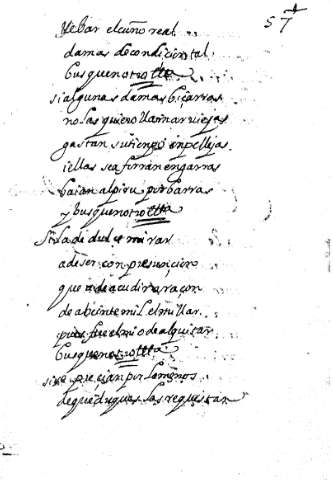 57
llebar el cuño real
damas de condicion tal
busquen otro
si algunas damas biçarras
no las quiero llamar viejas
gastan su tienpo en pellejas
i ellas se aferran en garras
baian al piru por barras
y busquen otro
si la de dulce mirar
a de ser con presunçion
que a de acudir a raçon
de a beinte mil el millar
pues fue el mio de alquilar
busquen otro
si se preçian por lo menos
de que duques las requiestan